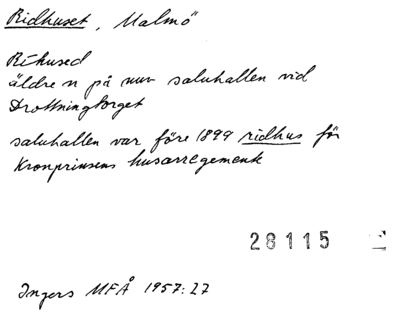 Ridhuset, Malmö
Rihused
äldre n på nuv saluhallen vid
Drottningtorget
saluhallen var före 1899 ridhus för
Kronprinsens husarregemente
28115
Ingers MFÅ 1957:27